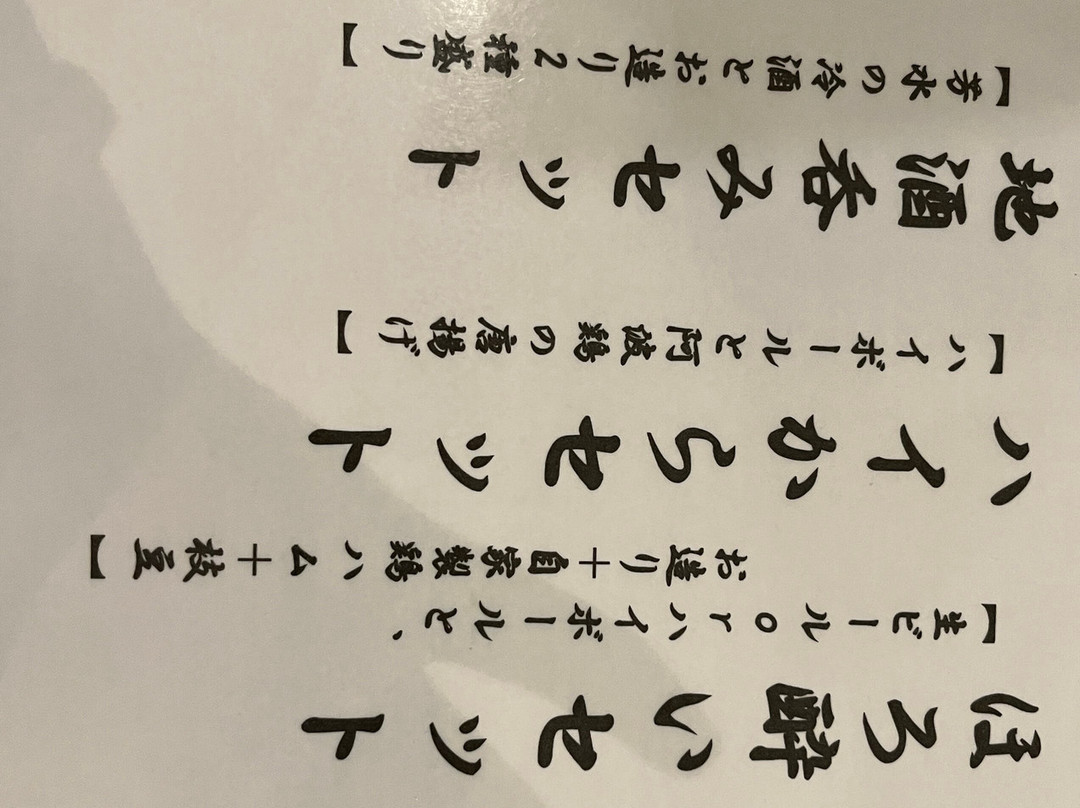 ほろ酔いセット
【生ビールorハイボールと、
お造り+自家製鶏ハム+枝豆】
ハイからセット
【ハイボールと阿波鶏の唐揚げ】
地酒呑みセット
【芳水の冷酒とお造り2種盛り】